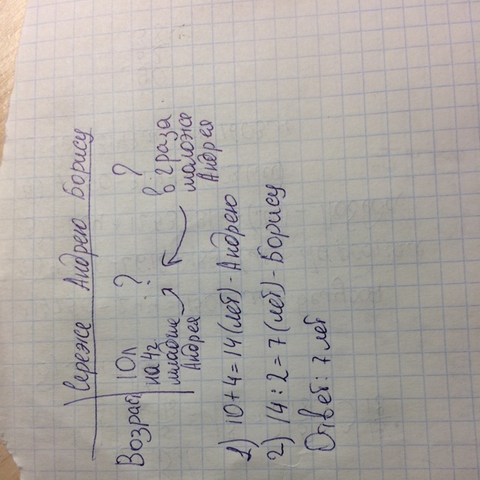 Сереже Андрею Борису
Возраст 10л ? ?
на 4г младше Андрея
в 2 раза моложе Андрея
1) 10+4=14(лет)-Андрею
2) 14:2=7(лет)-Борису
Ответ: 7 лет